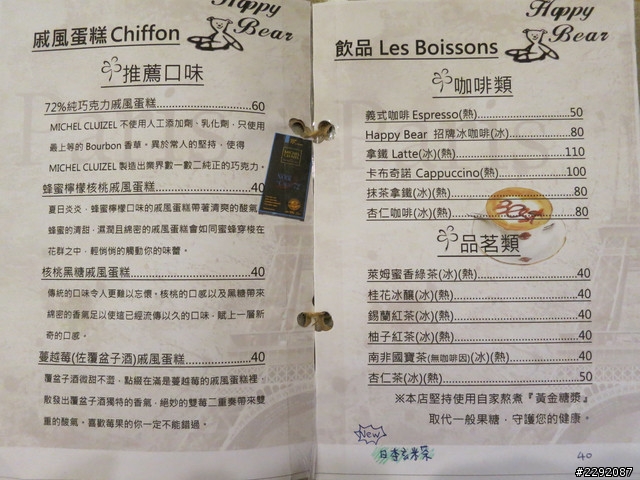 Happy Bear
戚風蛋糕 Chiffon
推薦口味
72%純巧克力戚風蛋糕..................60
MICHEL CLUIZEL 不使用人工添加劑、乳化劑，只使用
最上等的 Bourbon 香草。異於常人的堅持，使得
MICHEL CLUIZEL 製造出業界數一數二純正的巧克力。
蜂蜜檸檬核桃戚風蛋糕..................40
夏日炎炎，蜂蜜檸檬口味的戚風蛋糕帶著清爽的酸氣
蜂蜜的清甜，濕潤且綿密的戚風蛋糕會如同蜜蜂穿梭在
花群之中，輕悄悄的觸動你的味蕾。
核桃黑糖戚風蛋糕..................40
傳統的口味令人更難以忘懷。核桃的口感以及黑糖帶來
綿密的香氣足以使這已經流傳以久的口味，賦上一層新
奇的口感。
蔓越莓(佐覆盆子酒)戚風蛋糕..................40
覆盆子酒微甜不澀，點綴在滿是蔓越莓的戚風蛋糕裡，
散發出覆盆子酒獨特的香氣，絕妙的雙莓二重奏帶來雙
重的酸氣。喜歡莓果的你一定不能錯過。
Happy Bear
飲品 Les Boissons
咖啡類
義式咖啡 Espresso(熱)..................50
Happy Bear 招牌冰咖啡(冰)..................80
拿鐵 Latte(冰)(熱)..................110
卡布奇諾 Cappuccino(熱)..................100
抹茶拿鐵(冰)(熱)..................80
杏仁咖啡(冰)(熱)..................80
品茗類
萊姆蜜香綠茶(冰)(熱)..................40
桂花冰釀(冰)(熱)..................40
錫蘭紅茶(冰)(熱)..................40
柚子紅茶(冰)(熱)..................40
南非國寶茶(無咖啡因)(冰)(熱)..................40
杏仁茶(冰)(熱)..................50
※本店堅持使用自家熬煮『黃金糖漿』
取代一般果糖，守護您的健康。
New
40
#2292087